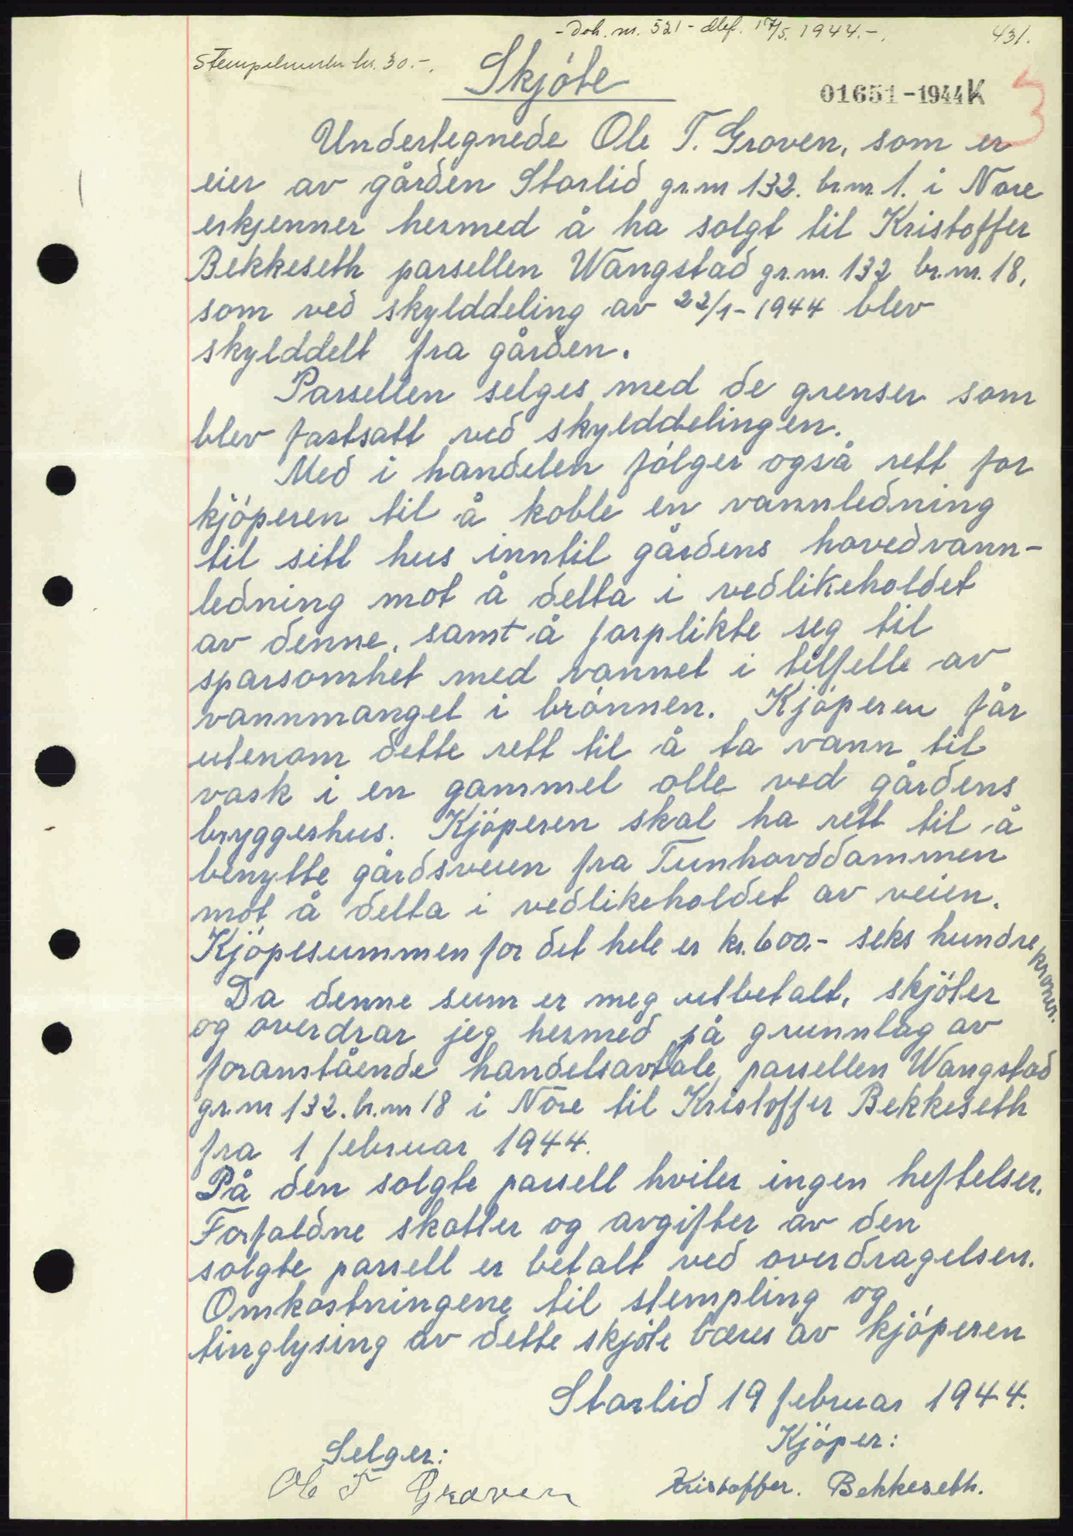 - Dok. nr. 521 - dlef. 17/5. 1944.-.
431.
Stempelmerke kr. 30.-.
Skjöte
01651-1944K
3
Undertegnede Ole T. Groven, som er
eier av gården Storlid gr.nr 132. br.nr. 1. i Nore
erkjenner hermed å ha solgt til Kristoffer
Bekkeseth parsellen Wangstad gr.nr. 132 br.nr. 18,
som ved skylddeling av 22/1- 1944 blev
skylddelt fra gården.
Parsellen selges med de grenser som
blev fastsatt ved skylddelingen.
Med i handelen fölger også rett for
kjöperen til å koble en vannledning
til sitt hus inntil gårdens hovedvann-
ledning mot å delta i vedlikeholdet
av denne, samt å forplikte seg til
sparsomhet med vannet i tilfelle av
vannmangel i brönnen. Kjöperen får
utenom dette rett til å ta vann til
vask i en gammel olle ved gårdens
bryggerhus. Kjöperen skal ha rett til å
benytte gårdsveien fra Tunhovddammen
mot å delta i vedlikeholdet av veien.
Kjöpesummen for det hele er kr. 600.- seks hundre kroner.
Da denne sum er meg utbetalt, skjöter
og overdrar jeg hermed på grunnlag av
foranstående handelsavtale parsellen Wangstad
gr.nr 132. br.nr 18 i Nore til Kristoffer Bekkeseth
fra 1 februar 1944.
På den solgte parsell hviler ingen heftelser.
Forfaldne skatter og avgifter av den
solgte parsell er betalt ved overdragelsen.
Omkostningene til stempling og
tinglysing av dette skjöte bæres av kjöperen
Storlid 19 februar 1944.
Selger:
Kjöper:
Ole T Groven
Kristoffer. Bekkeseth.